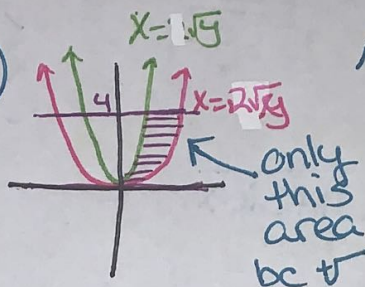 x=√y
4
x=2√y
only
this
area
bc +√